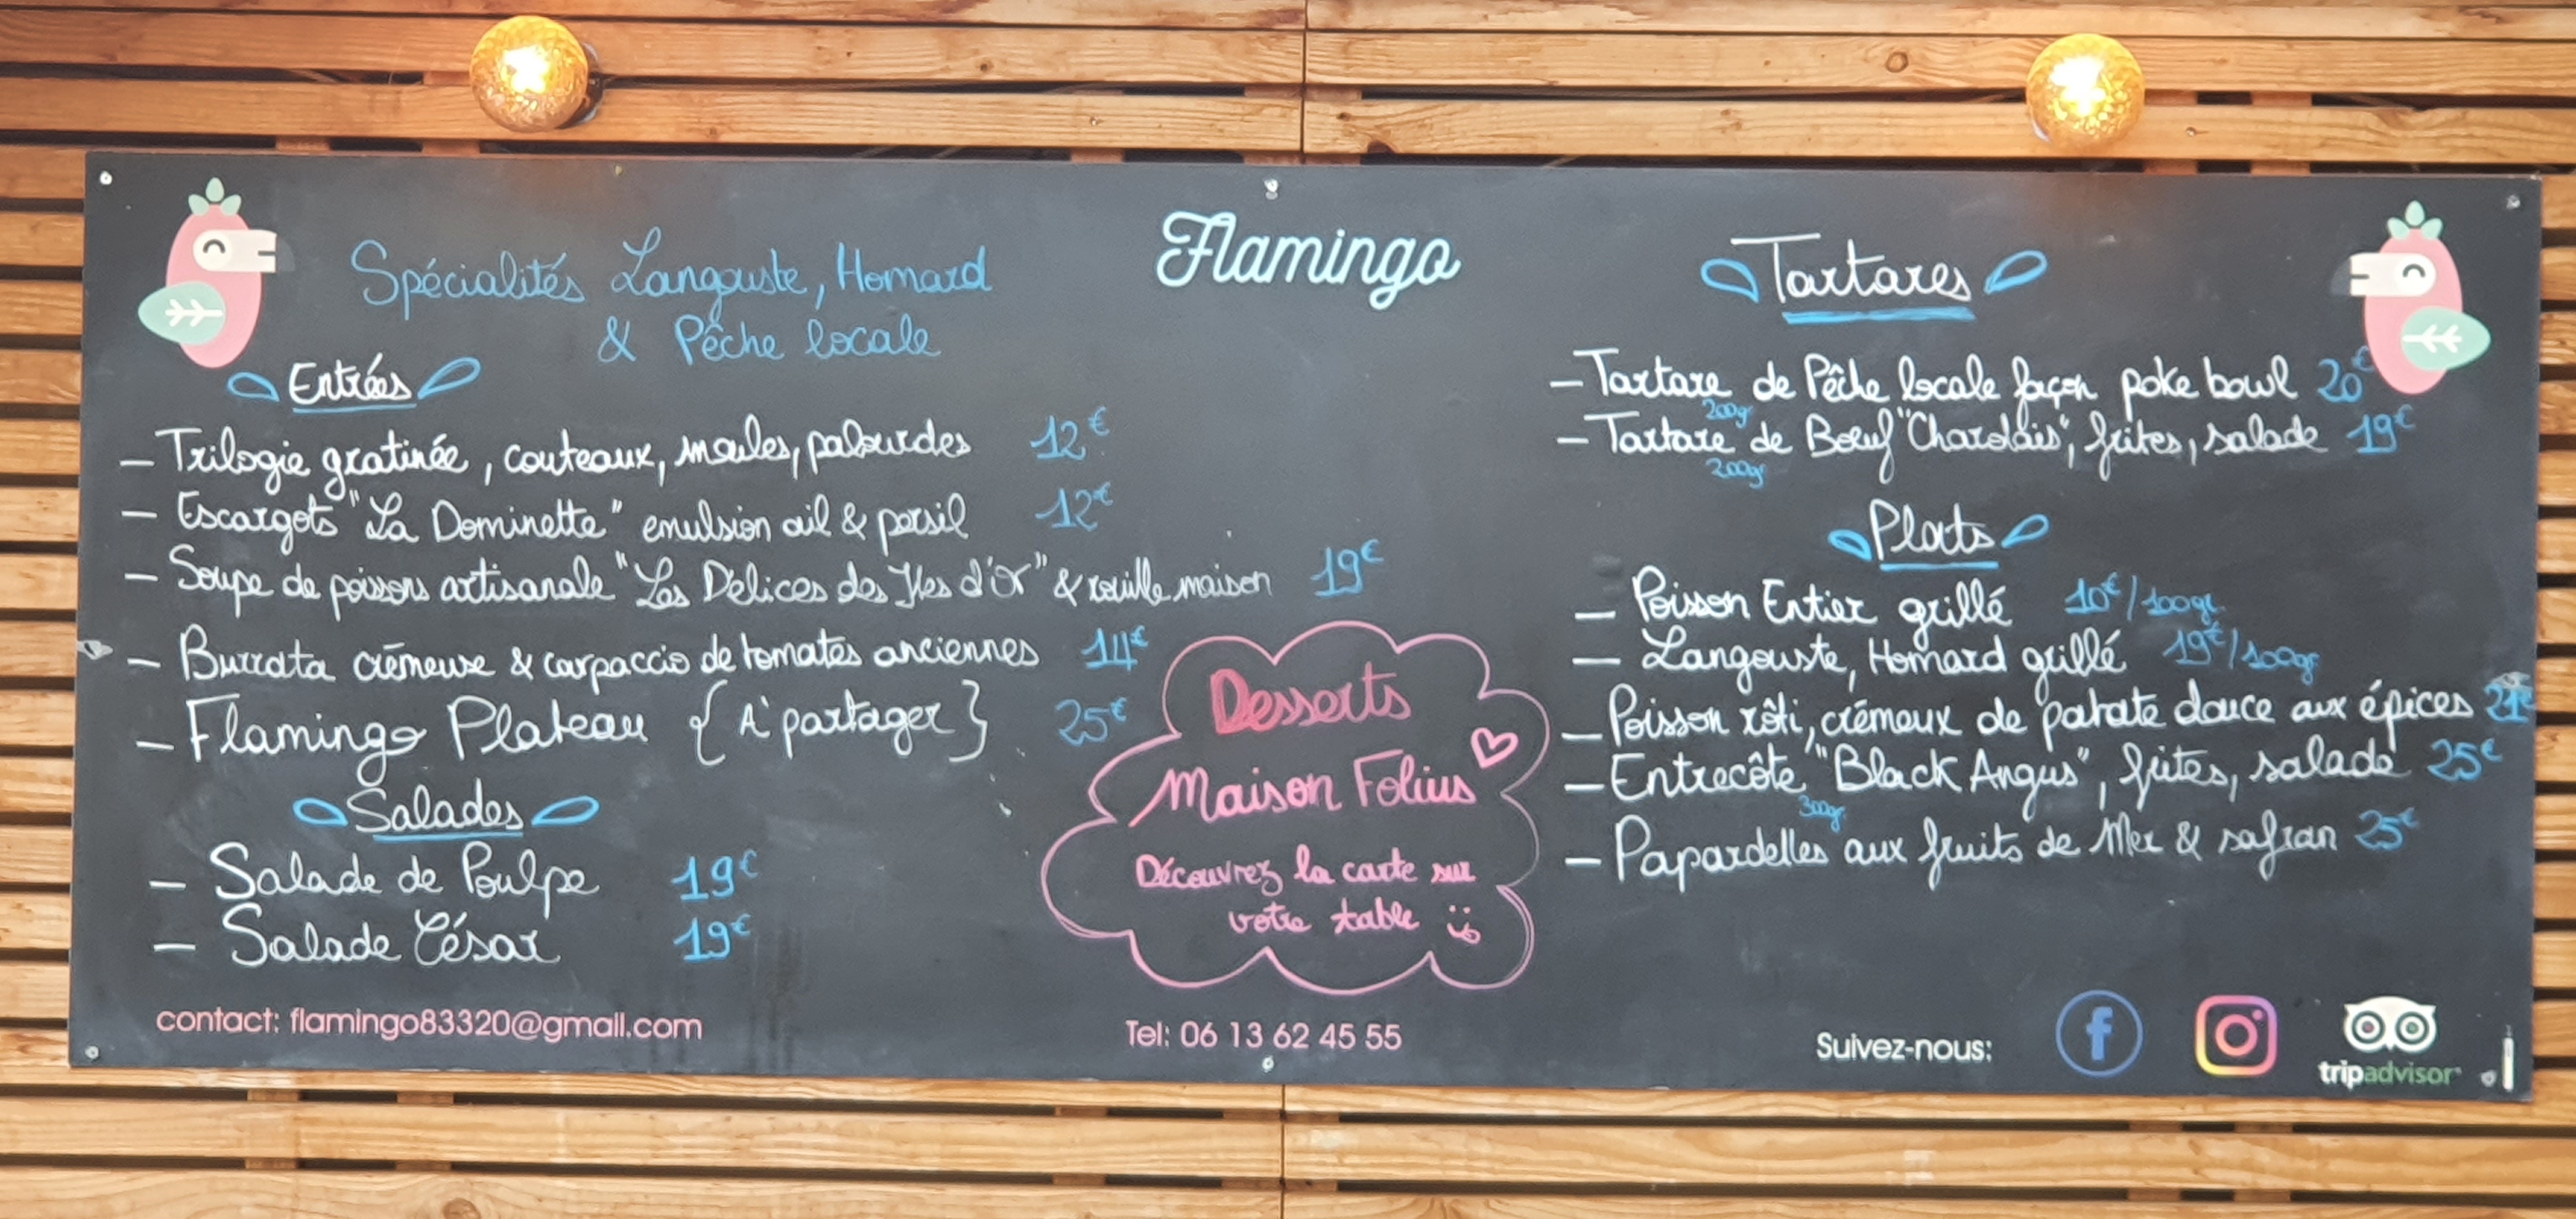 Flamingo
Spécialités Langouste, Homard
& Pêche locale
Entrées
– Trilogie gratinée, couteaux, moules, palourdes 12€
– Escargots "La Dominette" emulsion ail & persil 12€
– Soupe de poissons artisanale "Les Délices des Iles d'Or" & rouille maison 19€
– Burrata crémeuse & carpaccio de tomates anciennes 14€
– Flamingo Plateau { A partager } 25€
Salades
– Salade de Poulpe 19€
– Salade César 19€
contact: flamingo83320@gmail.com
Desserts
Maison Folius
Découvrez la carte sur
votre table
Tel: 06 13 62 45 55
Tartares
– Tartare de Pêche locale façon poke bowl 20€
200gr
– Tartare de Bœuf "Charolais", frites, salade 19€
200gr
Plats
– Poisson Entier grillé 10€/100gr
– Langouste, Homard grillé 19€/100gr
– Poisson rôti, crémeux de patate douce aux épices 21€
– Entrecôte "Black Angus", frites, salade 25€
300gr
– Papardelles aux fruits de Mer & safran 25€
Suivez-nous:
tripadvisor